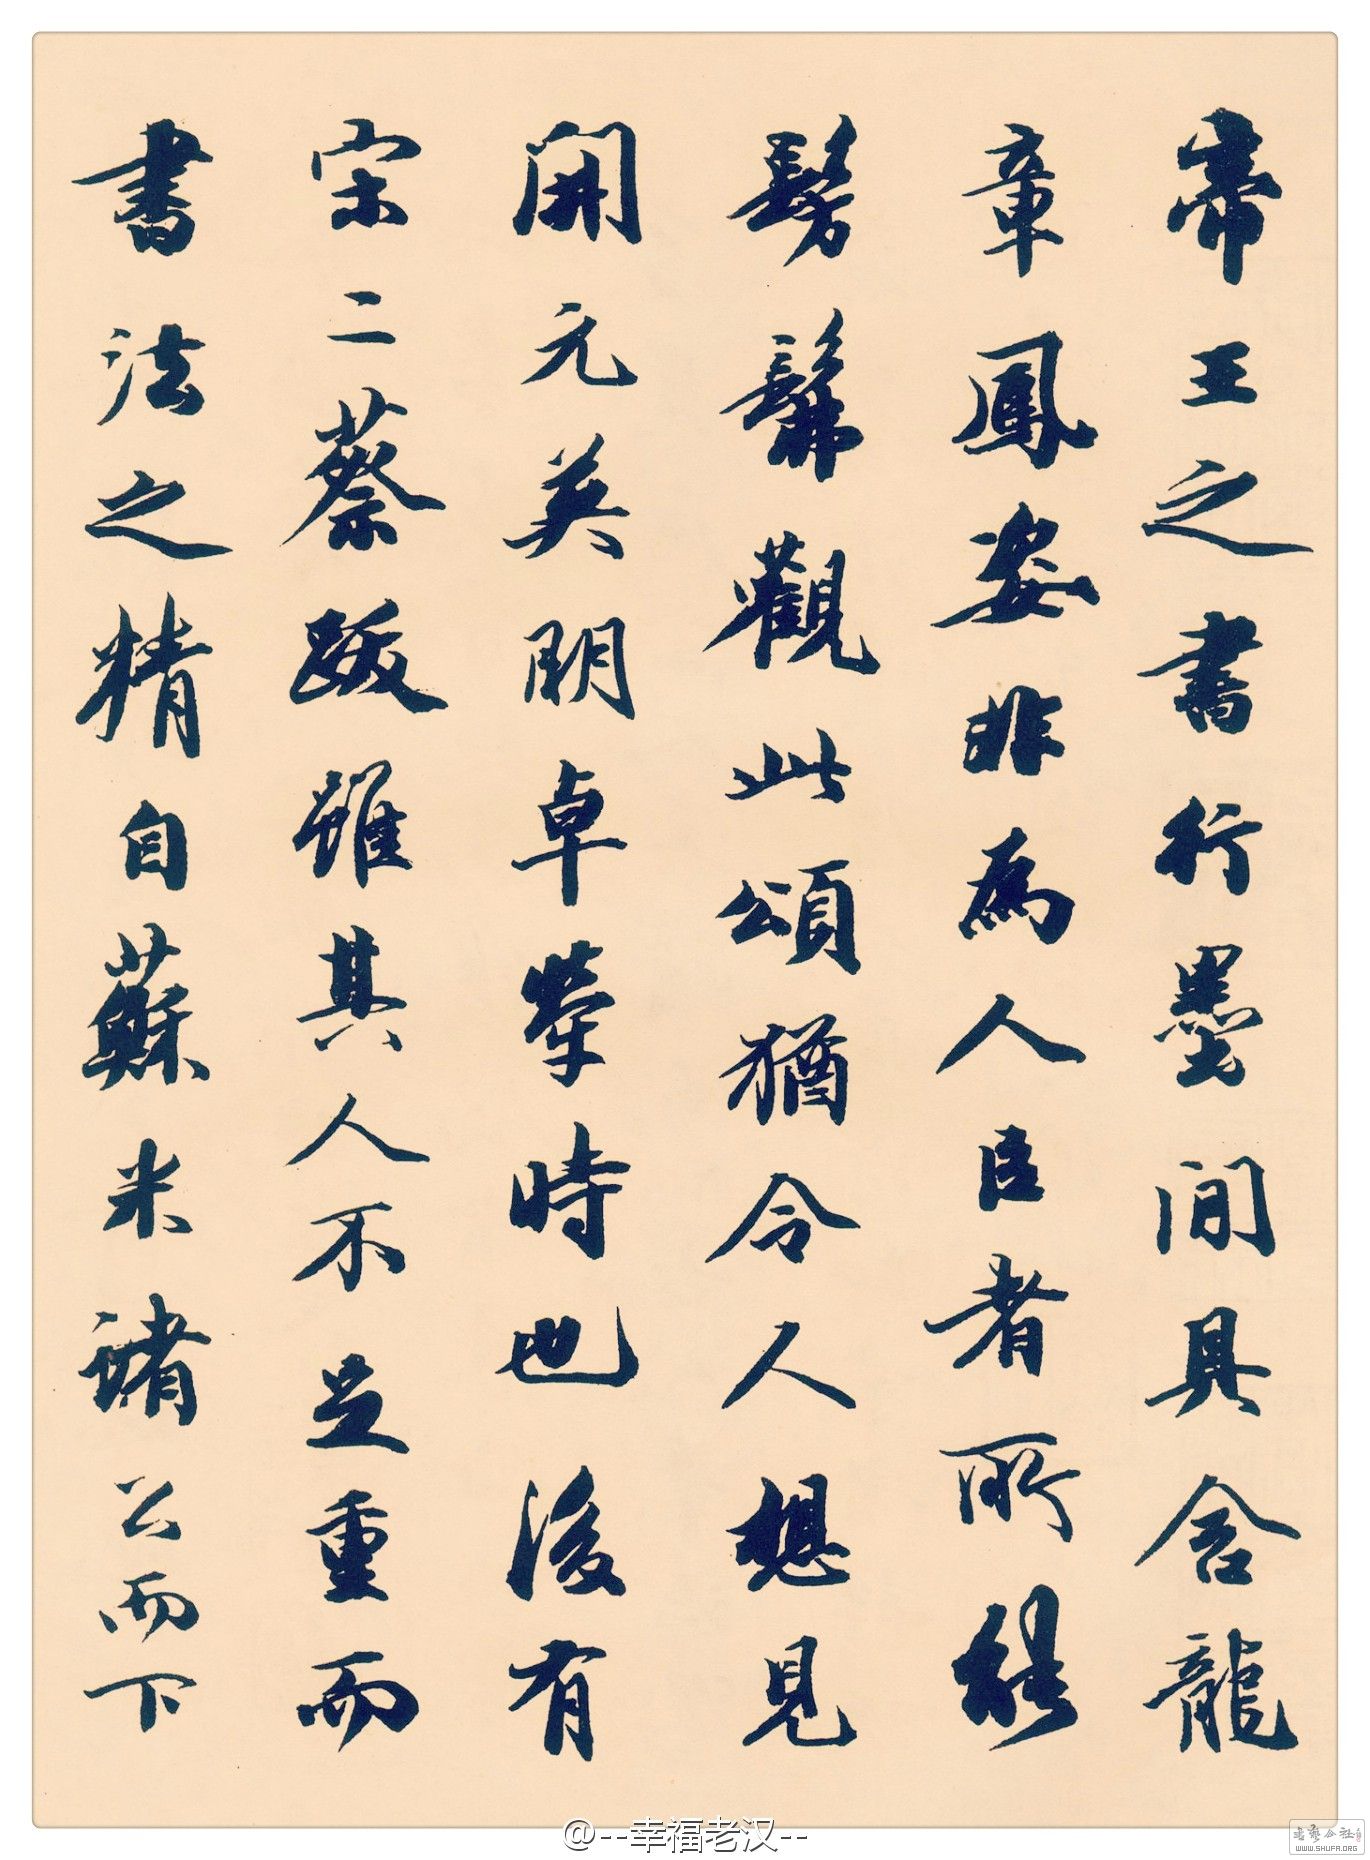 帝王之書行墨間具含龍
章鳳姿非為人臣者所能
髣髴觀此頌猶令人想見
開元英明卓犖時也後有
宗二蔡跋雖其人不足重而
書法之精自蘇米諸公而下
@--幸福老汉--
WWW.SHUFA.ORG